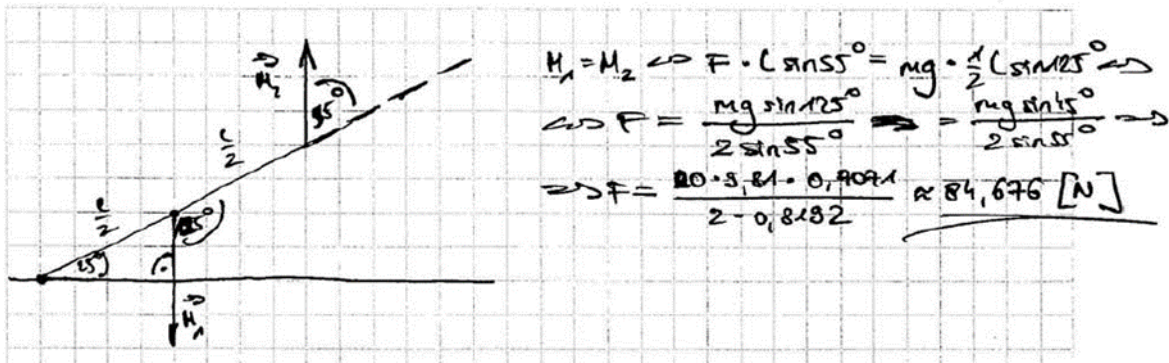 M₂
55°
l/2
l/2
25°
M₁
M₁ = M₂ ⇔ F · l sin55° = mg · 1/2 l sin125° ⇔
⇔ F = mg sin125° / 2 sin55° = mg sin 115° / 2 sin55° ⇒
⇒ F = 20 · 9,81 · 0,7071 / 2 · 0,8192 ≈ 84,676 [N]